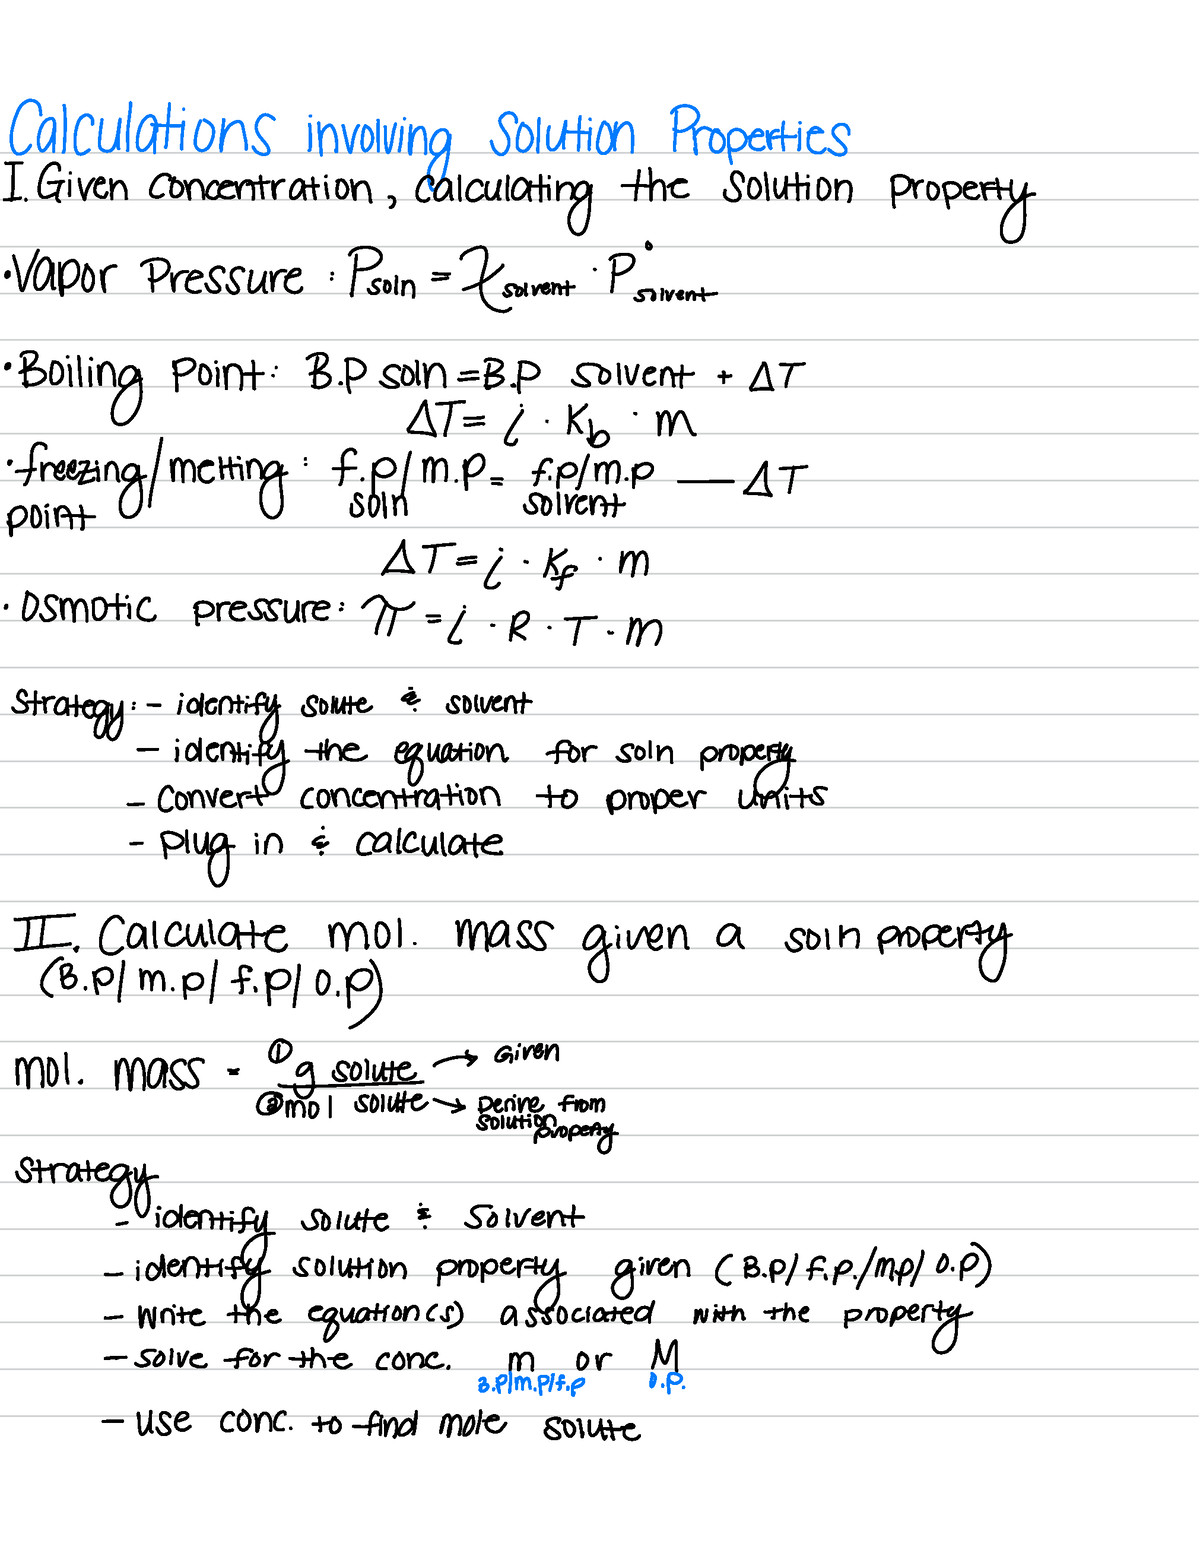 Calculations involving Solution Properties
I. Given concentration, calculating the solution property
• Vapor Pressure : Psoln = χsolvent · P°solvent
• Boiling Point: B.P soln = B.P solvent + ΔT
ΔT = i · Kb · m
• freezing/melting : f.p/m.p = f.p/m.p — ΔT
point soln solvent
ΔT = i · Kf · m
• Osmotic pressure: π = i · R · T · m
Strategy: - identify solute & solvent
- identify the equation for soln property
- Convert concentration to proper units
- plug in & calculate
II. Calculate mol. mass given a soln property
(B.p/m.p/f.p/o.p)
mol. mass = ① g solute → Given
② mol solute → Derive from
solution
property
Strategy
- identify solute & Solvent
- identify solution property given (B.p/f.p./m.p/o.p)
- Write the equation(s) associated with the property
- solve for the conc. m or M
B.p/m.p/f.p o.p.
- use conc. to find mole solute